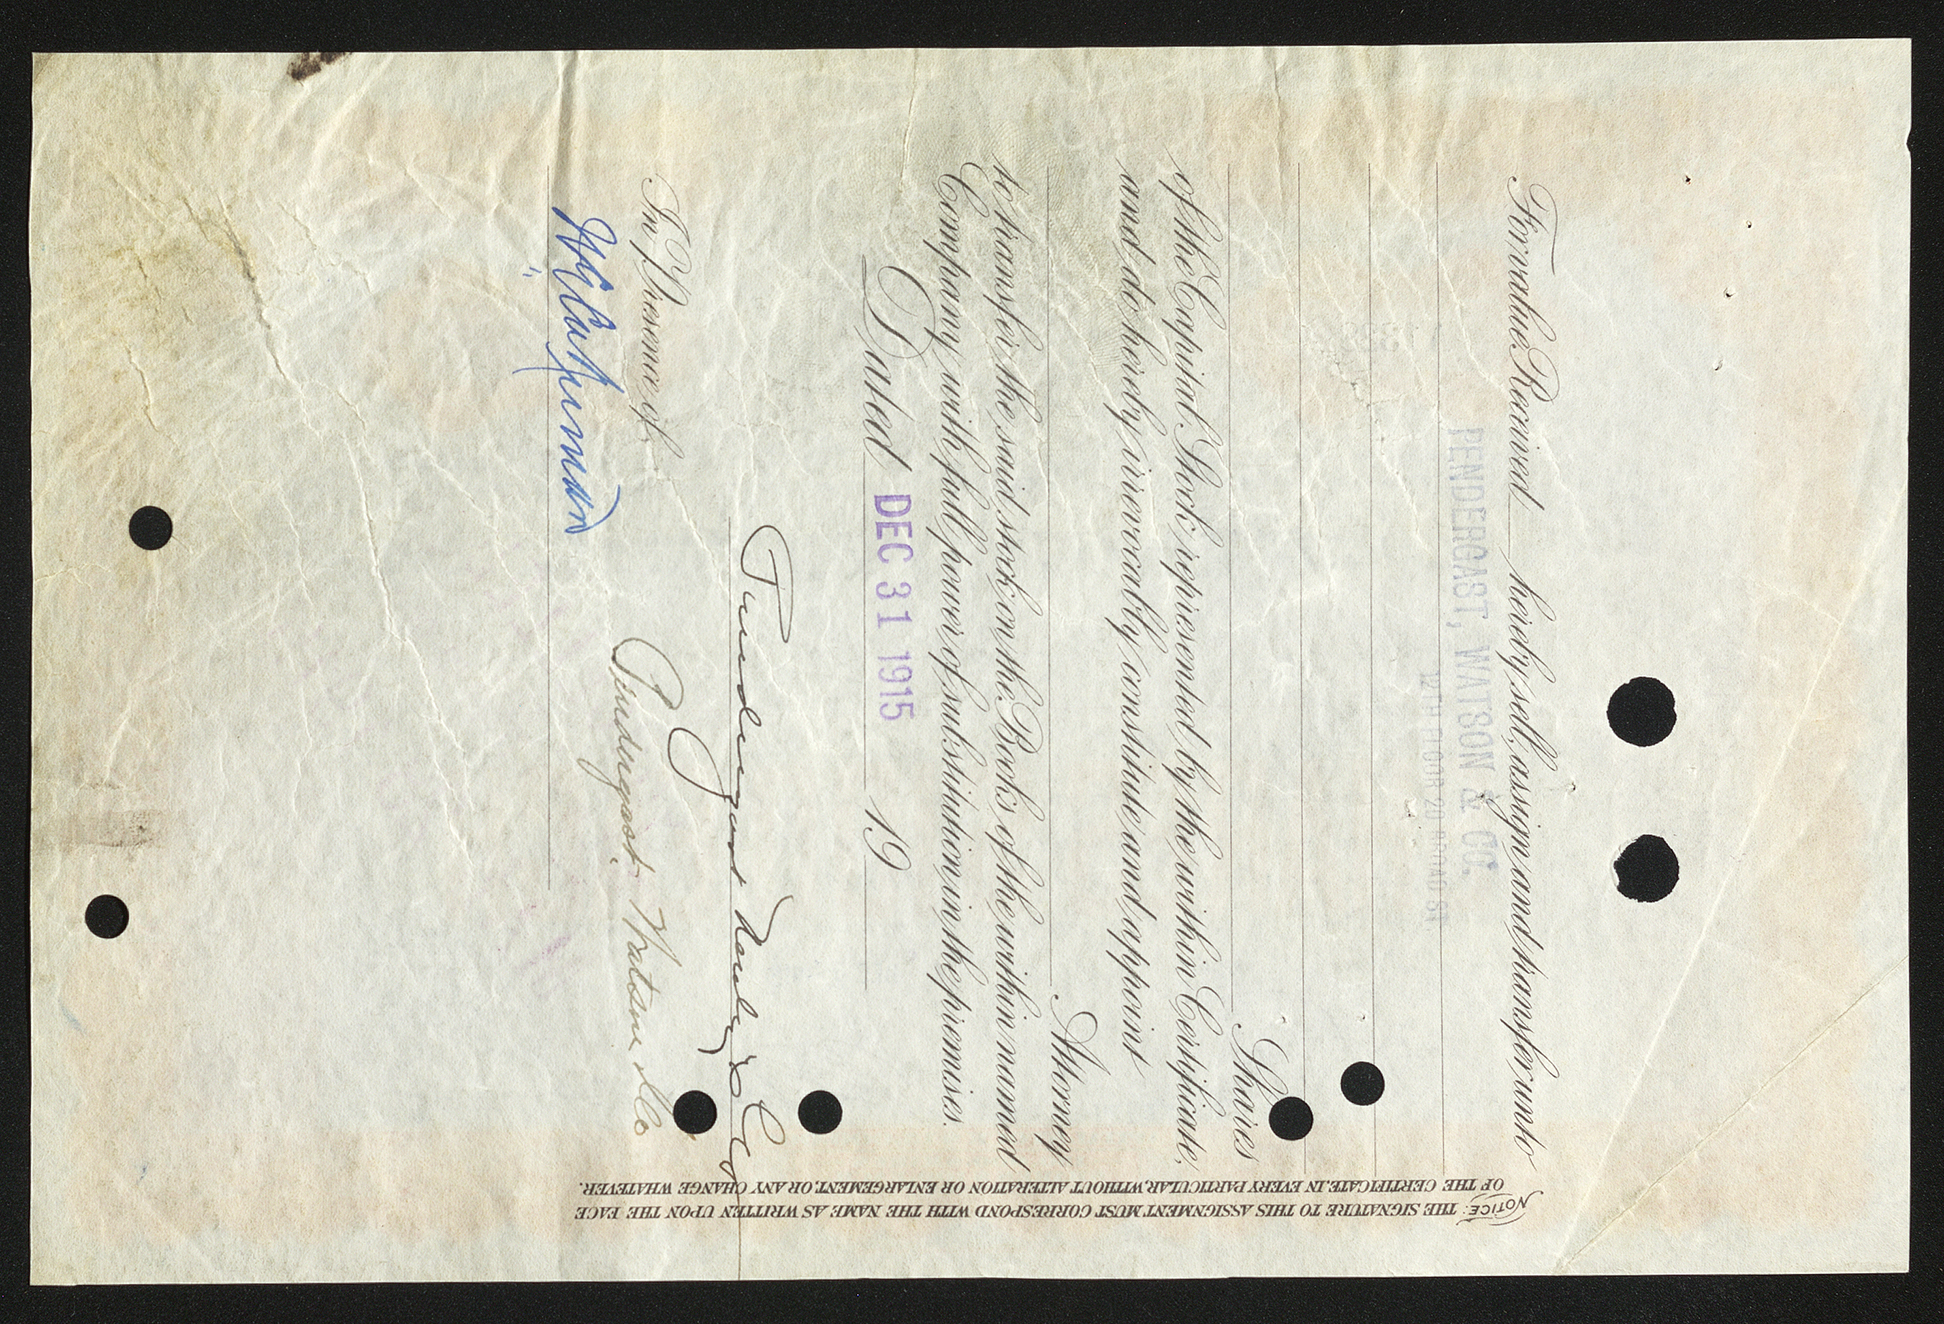 For value Received hereby sell, assign and transfer unto
PENDERGAST, WATSON & CO.
Shares
of the Capital Stock represented by the within Certificate,
and do hereby irrevocably constitute and appoint
Attorney
to transfer the said stock on the Books of the within named
Company with full power of substitution in the premises.
Dated DEC 31 1915 19
In Presence of
Pendergast, Watson & Co
NOTICE: THE SIGNATURE TO THIS ASSIGNMENT MUST CORRESPOND WITH THE NAME AS WRITTEN UPON THE FACE
OF THE CERTIFICATE, IN EVERY PARTICULAR, WITHOUT ALTERATION OR ENLARGEMENT, OR ANY CHANGE WHATEVER.